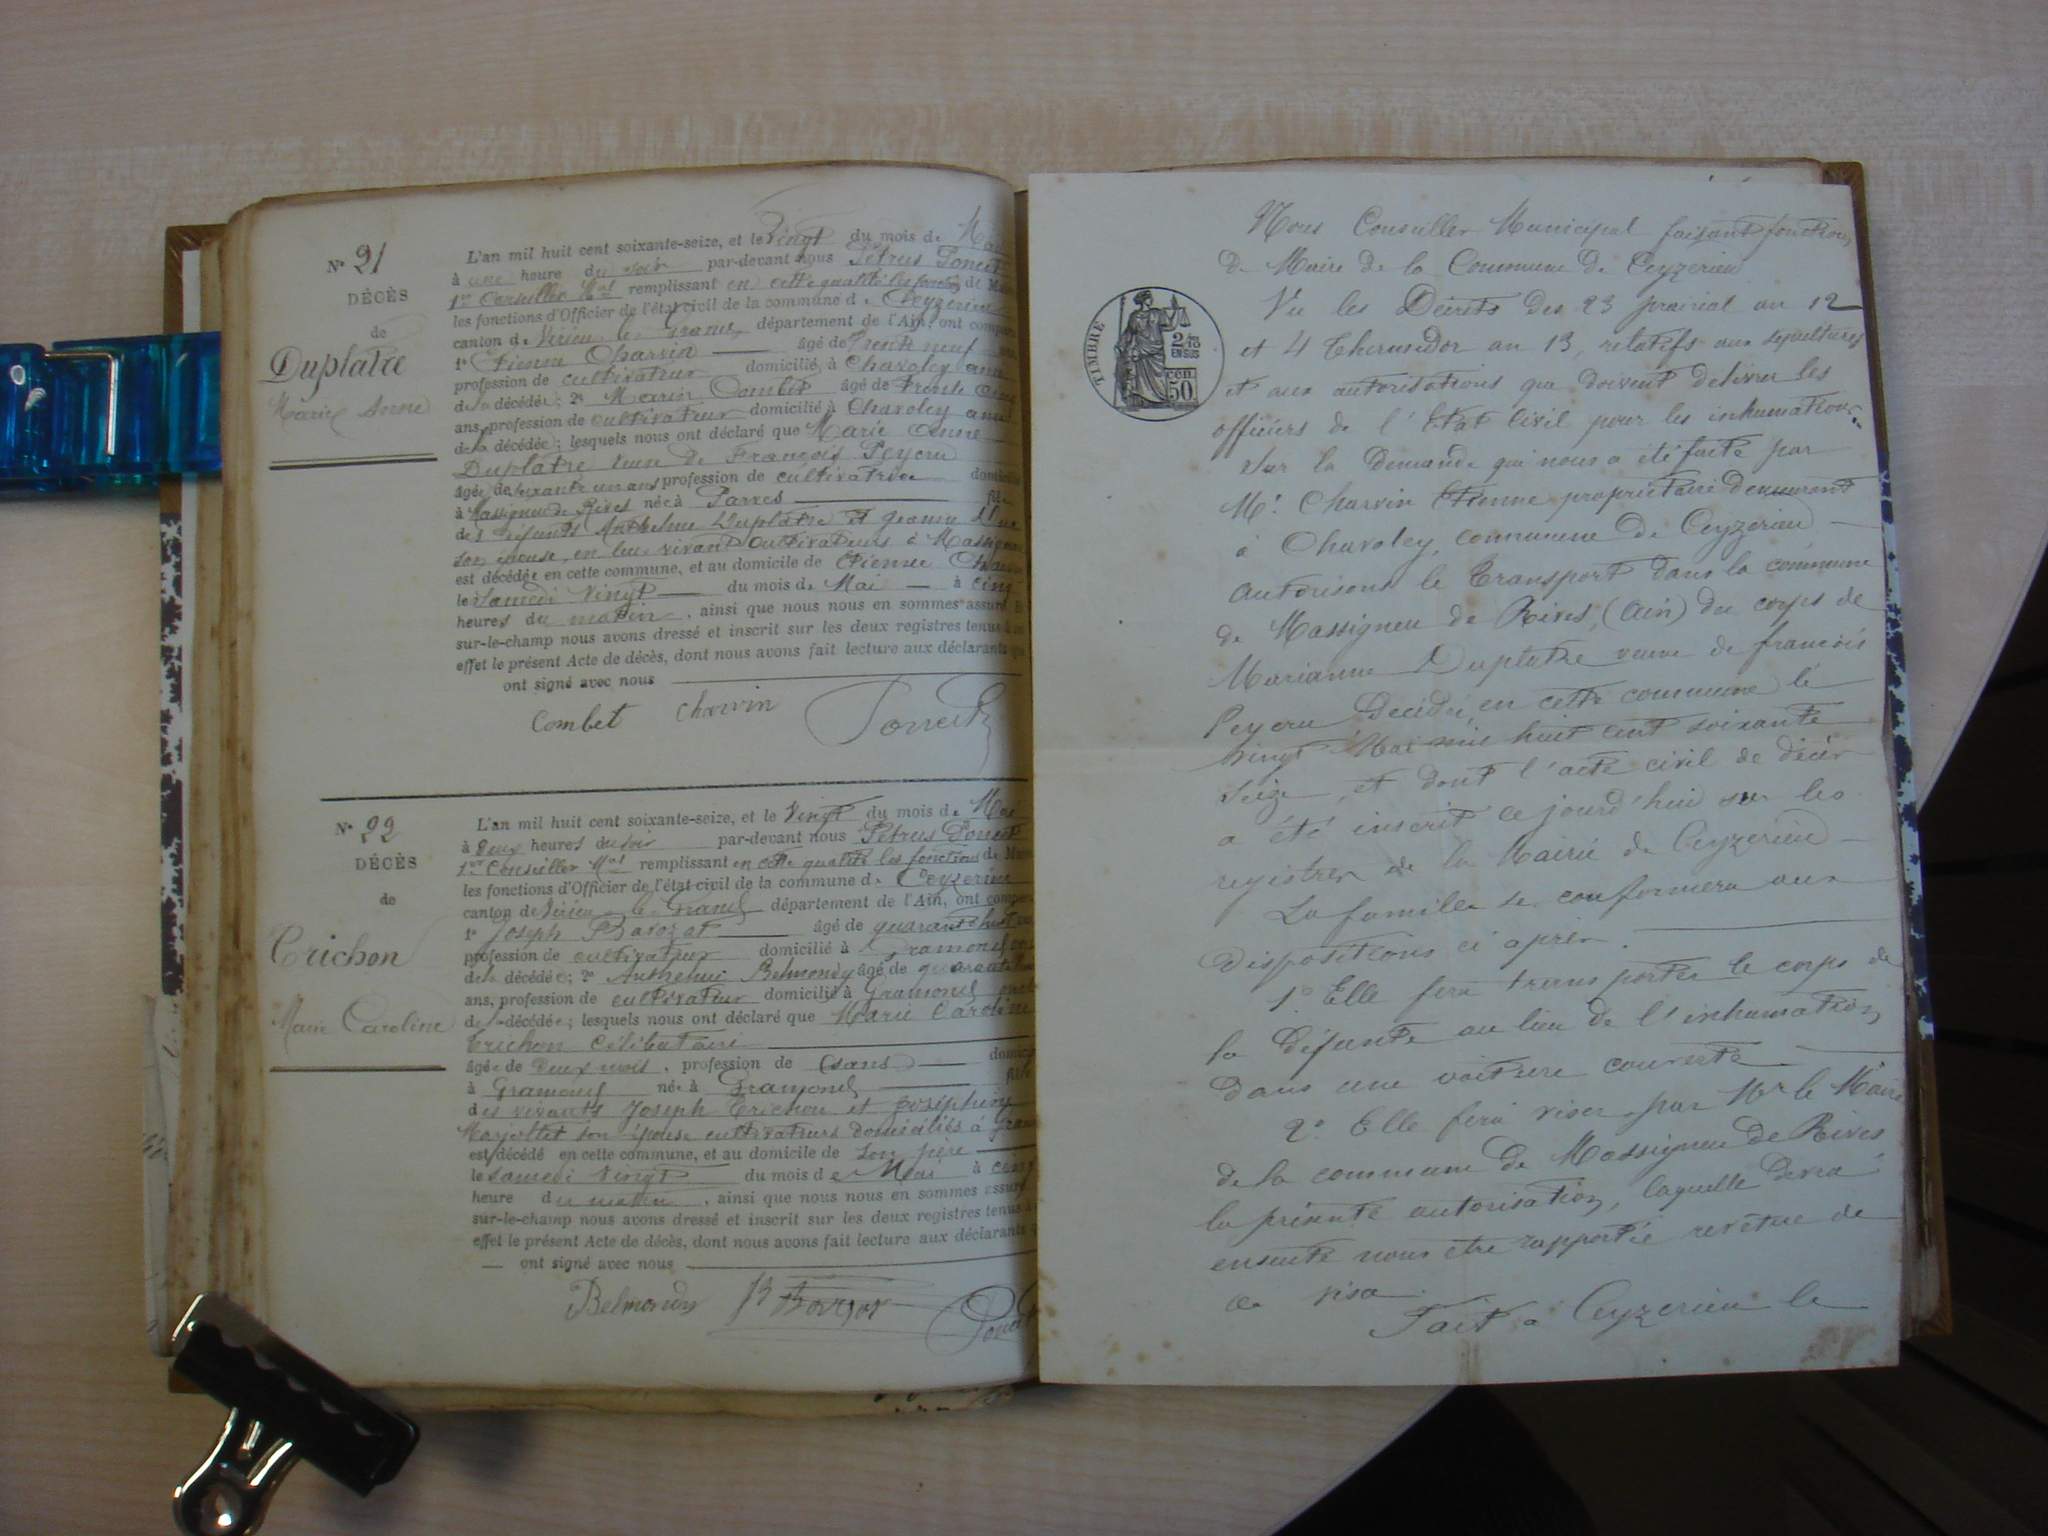 N° 21
DÉCÈS
de
Duplatre
Marie Anne
L'an mil huit cent soixante-seize, et le Vingt du mois de Mai
à une heure du soir par-devant nous Petrus Poncet
1er Conseiller Mal remplissant en cette qualité les fonctions de Maire
les fonctions d'Officier de l'état civil de la commune de Ceyzerieu
canton de Virieu le Grand, département de l'Ain, ont comparu
1° Etienne Charvin âgé de trente neuf ans
profession de cultivateur domicilié à Chavoley ami
de la décédée; 2° Marin Combet âgé de trente cinq
ans, profession de cultivateur domicilié à Chavoley ami
de la décédée; lesquels nous ont déclaré que Marie Anne
Duplatre veuve de François Peyeru
âgée de soixante un ans profession de cultivatrice domiciliée
à Massigneu de Rives née à Parves fille
des défunts Anthelme Duplatre et Jeanne
son épouse, en leur vivant cultivateurs à Massigneu
est décédée en cette commune, et au domicile de Etienne Charvin
le Samedi Vingt du mois de Mai à cinq
heures du matin, ainsi que nous nous en sommes assuré. Et
sur-le-champ nous avons dressé et inscrit sur les deux registres tenus à cet
effet le présent Acte de décès, dont nous avons fait lecture aux déclarants qui
ont signé avec nous
Combet Charvin Poncet
N° 22
DÉCÈS
de
Crichon
Marie Caroline
L'an mil huit cent soixante-seize, et le Vingt du mois de Mai
à Deux heures du soir par-devant nous Petrus Poncet
1er Conseiller Mal remplissant en cette qualité les fonctions de Maire
les fonctions d'Officier de l'état civil de la commune de Ceyzerieu
canton de Virieu le Grand département de l'Ain, ont comparu
1° Joseph Bavozat âgé de quarante huit ans
profession de cultivateur domicilié à Gramond
de la décédée; 2° Anthelme Belmondy âgé de quarante
ans, profession de cultivateur domicilié à Gramond oncle
de la décédée; lesquels nous ont déclaré que Marie Caroline
Crichon Célibataire
âgée de deux mois, profession de (sans) domiciliée
à Gramond née à Gramond fille
des vivants Joseph Crichon et Joséphine
Marjollet son épouse cultivateurs domiciliés à Gramond
est décédé en cette commune, et au domicile de son père
le samedi Vingt du mois de Mai à cinq
heure du matin, ainsi que nous nous en sommes assuré
sur-le-champ nous avons dressé et inscrit sur les deux registres tenus à
effet le présent Acte de décès, dont nous avons fait lecture aux déclarants
ont signé avec nous
Belmondy Poncet
TIMBRE
2/10
EN SUS
CEN.
50.
Nous Conseiller Municipal faisant fonctions
de Maire de la Commune de Ceyzerieu
Vu les Décrets des 23 prairial an 12
et 4 Thermidor an 13, relatifs aux sépultures
et aux autorisations que doivent délivrer les
officiers de l'Etat Civil pour les inhumations.
Sur la Demande qui nous a été faite par
Mr. Charvin Etienne propriétaire demeurant
à Chavoley, commune de Ceyzerieu
Autorisons le Transport dans la commune
de Massigneu de Rives, (Ain) du corps de
Marianne Duplatre veuve de françois
Peyeru Décédé, en cette commune le
vingt Mai mil huit cent soixante
seize, et dont l'acte civil de décès
a été inscrit ce jourd'hui sur les
registres de la Mairie de Ceyzerieu
La famille se conformera aux
dispositions ci après.
1° Elle fera transporter le corps de
la Défunte au lieu de l'inhumation,
dans une voiture couverte
2° Elle fera viser par Mr le Maire
de la commune de Massigneu de Rives
la présente autorisation, laquelle devra
ensuite nous être rapportée revêtue de
ce visa.
Fait à Ceyzerieu le